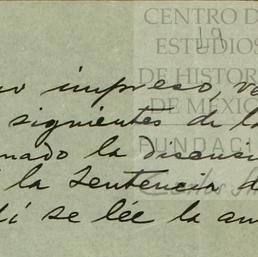 CENTRO D
ESTUDIOS
19
DE HISTOR
DE MÉXIC
FUNDACI
impreso, va
siguientes de la
nado la discusi
la Sentencia d
se lée la an